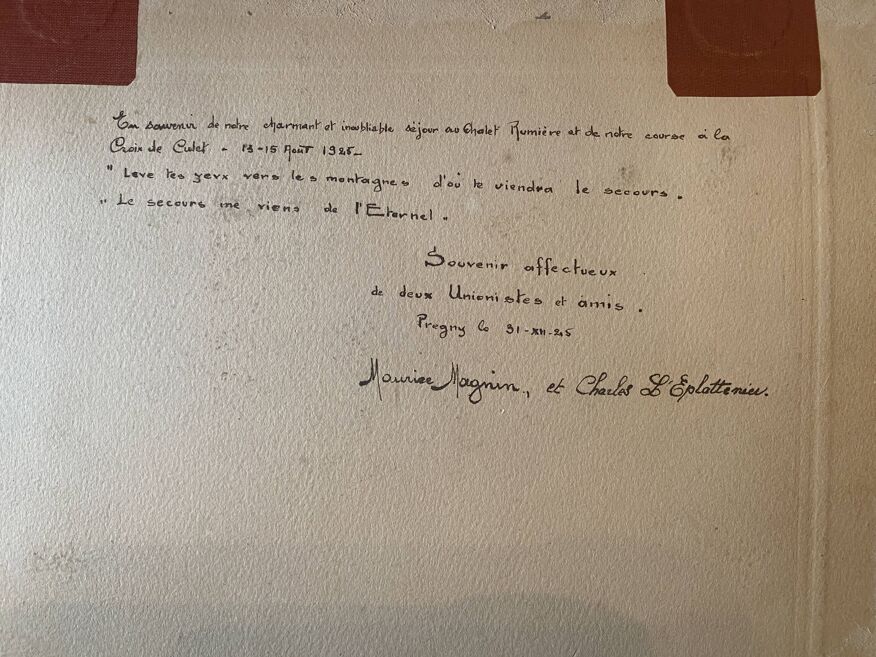 En souvenir de notre charmant et inoubliable séjour au Chalet Rumière et de notre course à la
Croix de Culet - 13-15 Août 1925_
" Leve tes yeux vers les montagnes d'où te viendra le secours.
" Le secours me viens de l'Eternel.
Souvenir affectueux
de deux Unionistes et amis.
Pregny le 31-XII-25
Maurice Magnin, et Charles L'Eplattenier.